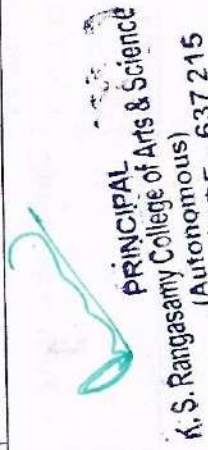 PRINCIPAL
K. S. Rangasamy College of Arts & Science
(Autonomous)
637 215